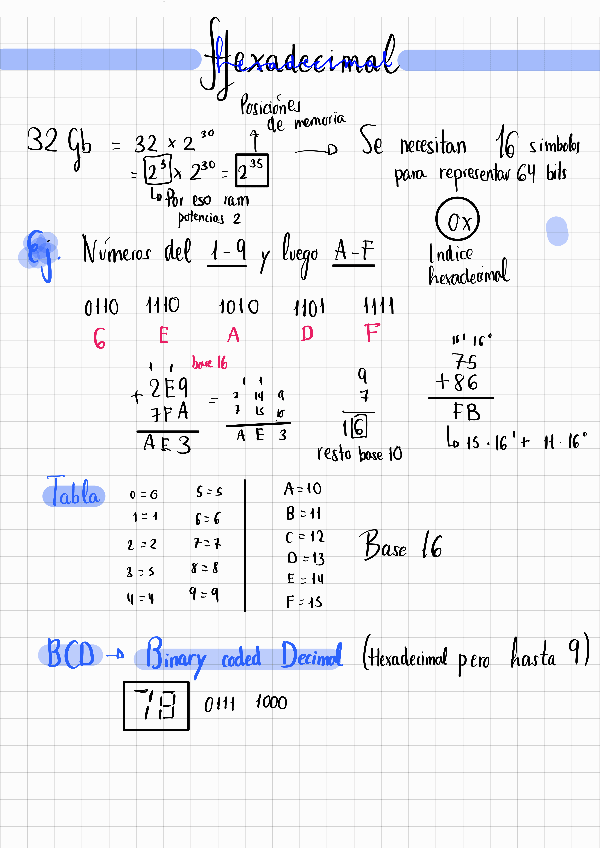 Hexadecimal
Posiciones
de memoria
32 Gb = 32 × 2^30 ↑ → Se necesitan 16 simbolos
= 2^5 × 2^30 = 2^35 para representar 64 bits
↳ Por eso ram
potencias 2
0x
Indice
hexadecimal
Ej. Números del 1-9 y luego A-F
0110 1110 1010 1101 1111
6 E A D F
base 16
1 1
+ 2E9
7FA
AE3
=
1 1
2 14 9
7 15 10
A E 3
9
7
1 6
resto base 10
16^1 16^0
75
+ 86
FB
↳ 15 · 16^1 + 11 · 16^0
Tabla
0 = 0 5 = 5 A = 10
1 = 1 6 = 6 B = 11
2 = 2 7 = 7 C = 12
3 = 3 8 = 8 D = 13
4 = 4 9 = 9 E = 14
F = 15
Base 16
BCD → Binary coded Decimal (Hexadecimal pero hasta 9)
78 0111 1000